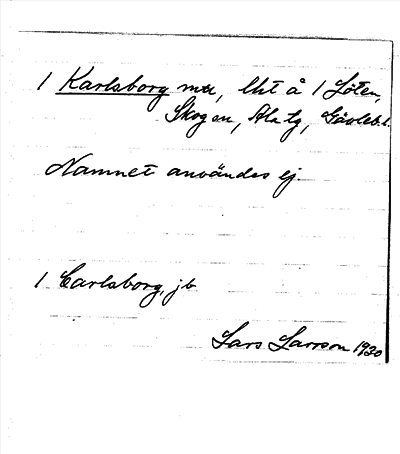 1 Karlsborg
å 1 Löten,
Skogen, Ala tg, Gävleb.l.
Namnet användes ej.
1 Carlsborg, jb
Lars Larsson 1930